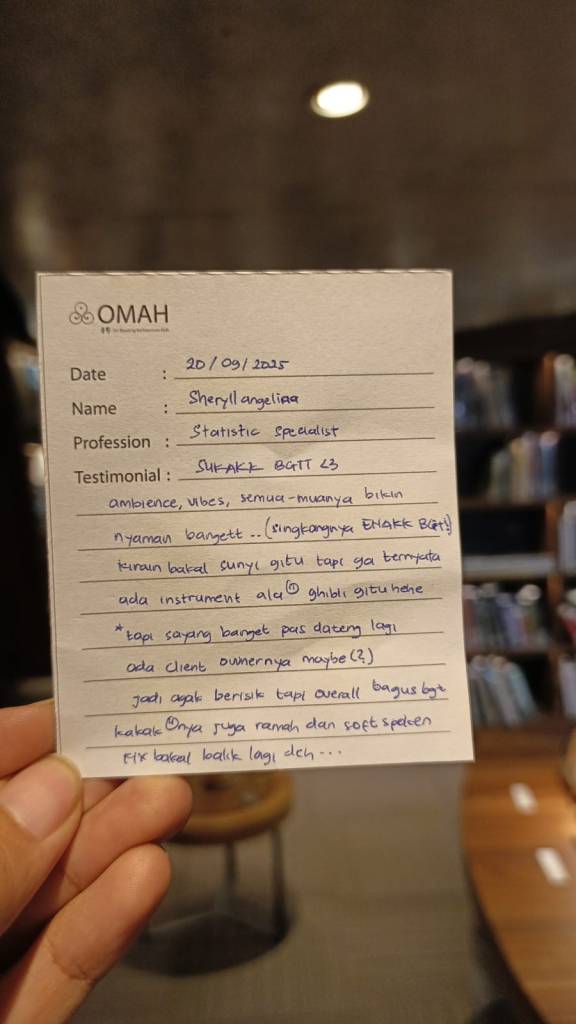 OMAH
Date : 20/09/2025
Name : Sheryll angelina
Profession : Statistic specialist
Testimonial : SUKAKK BGTT <3
ambience, vibes, semua-muanya bikin
nyaman bangett .. (singkongnya ENAKK BGT!)
kirain bakal sunyi gitu tapi ga ternyata
ada instrument ala② ghibli gitu hehe
*tapi sayang banget pas dateng lagi
ada client ownernya maybe (?)
jadi agak berisik tapi overall bagus bgt
kakak②nya juga ramah dan soft spoken
FIX bakal balik lagi deh ...